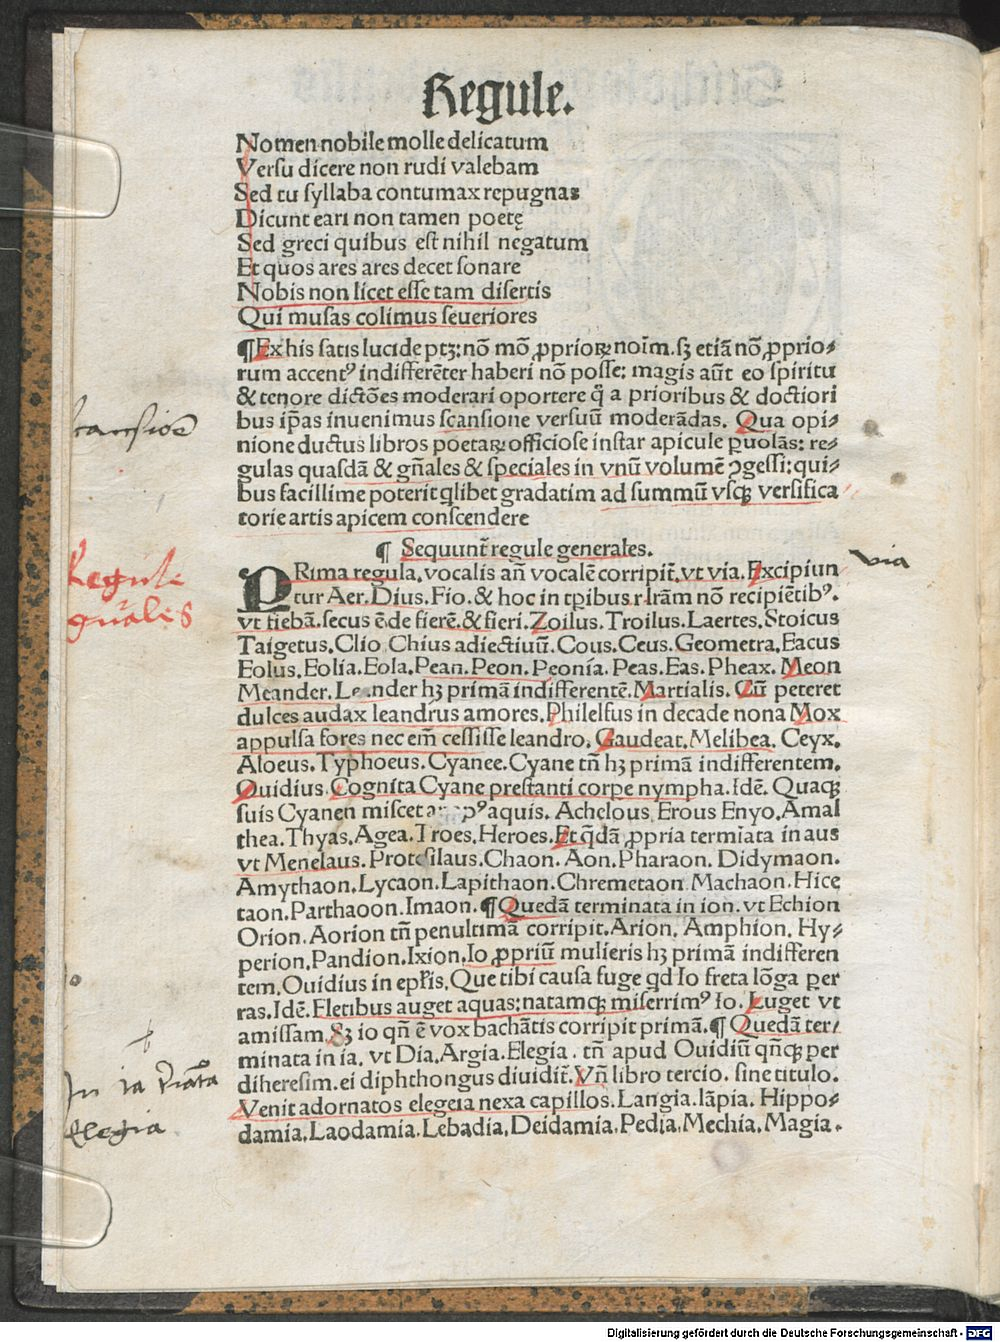 Regule.
Nomen nobile molle delicatum
Versu dicere non rudi valebam
Sed tu syllaba contumax repugnas
Dicunt eari non tamen poetę
Sed greci quibus est nihil negatum
Et quos ares ares decet sonare
Nobis non licet esse tam disertis
Qui musas colimus seueriores
¶Ex his satis lucide ptꝫ: nō mō ꝓprioꝝ noīm. sꝫ etiā nō ꝓprio⸗
rum accentꝰ indifferēter haberi nō posse: magis aūt eo spiritu
& tenore dictōes moderari oportere q̄ a prioribus & doctiori
bus ip̄as inuenimus scansione versuū moderādas. Qua opi⸗
nione ductus libros poetaꝝ officiose instar apicule ꝑuolās: re⸗
gulas quasdā & gn̄ales & speciales in vnū volumē ꝯgessi: qui⸗
bus facillime poterit qlibet gradatim ad summū vsqꝫ versifica
torie artis apicem conscendere
scansiōe
¶ Sequunt̄ regule generales.
Regule
gn̄ales
via
PRima regula, vocalis an̄ vocalē corripit̄. vt via. Excipiun
tur Aer. Dius. Fio. & hoc in tꝑibus r lrām nō recipiētibꝰ.
vt fiebā. secus ē de fierē. & fieri. Zoilus. Troilus. Laertes. Stoicus
Taigetus. Clio Chius adiectiuū. Cous. Ceus. Geometra. Eacus
Eolus. Eolia. Eola. Pean. Peon. Peonia. Peas. Eas. Pheax. Meon
Meander. Leander hꝫ primā indifferentē. Martialis. Cū peteret
dulces audax leandrus amores. Philelfus in decade nona Mox
appulsa fores nec em̄ cessisse leandro. Gaudeat. Melibea. Ceyx.
Aloeus. Typhoeus. Cyanee. Cyane tn̄ hꝫ primā indifferentem.
Ouidius. Cognita Cyane prestanti corpe nympha. Idē. Quaqꝫ
suis Cyanen miscet aquis. Achelous Erous Enyo. Amal
thea. Thyas. Agea. Troes. Heroes. Et q̄dā ꝓpria termiata in aus
vt Menelaus. Protesilaus. Chaon. Aon. Pharaon. Didymaon.
Amythaon. Lycaon. Lapithaon. Chremetaon Machaon. Hice
taon. Parthaoon. Imaon. ¶Quedā terminata in ion. vt Echion
Orion. Aorion tn̄ penultimā corripit. Arion. Amphion. Hy⸗
perion. Pandion. Ixion. Io ꝓpriū mulieris hꝫ primā indifferen
tem. Ouidius in epl̄is. Que tibi causa fuge qd Io freta lōga per
ras. Idē. Fletibus auget aquas: natamqꝫ miserrimꝰ Io. Luget vt
amissam. Sꝫ io qn̄ ē vox bachātis corripit primā. ¶ Quedā ter⸗
minata in ia. vt Dia. Argia. Elegia. tn̄ apud Ouidiū qn̄qꝫ per
diheresim. ei diphthongus diuidit̄. Vn̄ libro tercio. sine titulo.
Venit adornatos elegeia nexa capillos. Langia. lāpia. Hippo⸗
damia. Laodamia. Lebadia. Deidamia. Pedia. Mechia. Magia.
In ia
Elegia
Digitalisierung gefördert durch die Deutsche Forschungsgemeinschaft - DFG